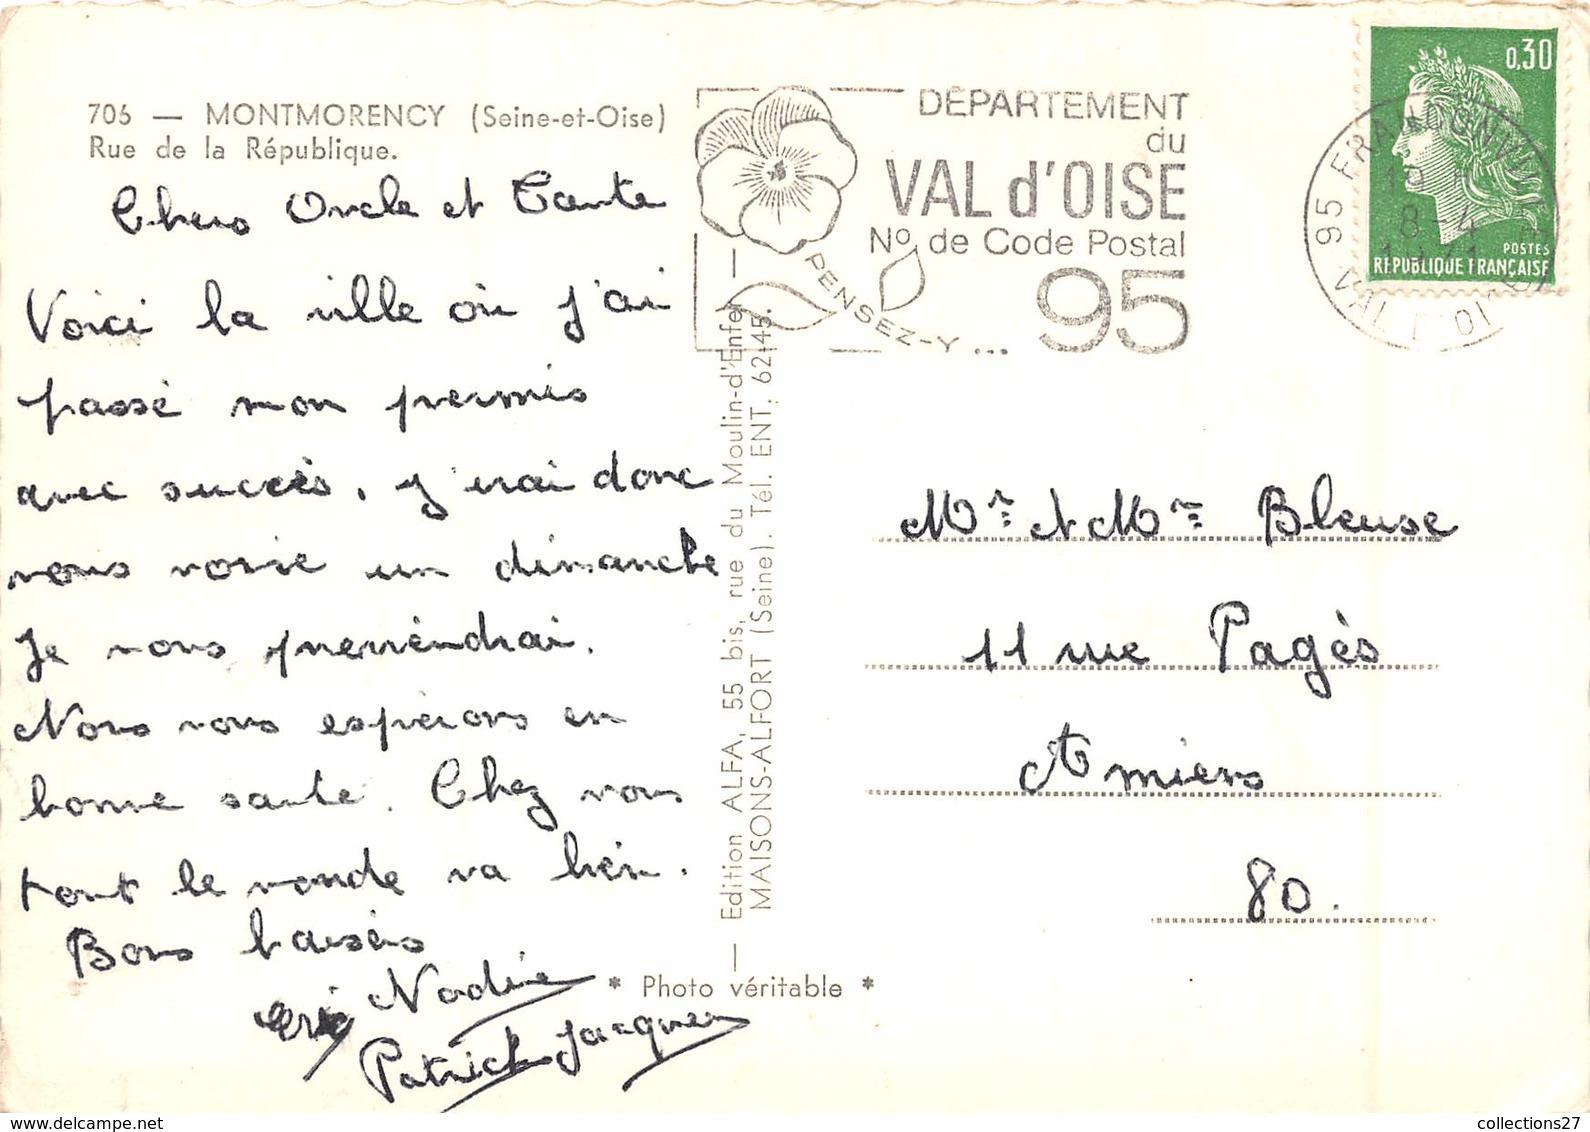 706 — MONTMORENCY (Seine-et-Oise)
Rue de la République.
Chers Oncle et Tante
Voici la ville où j'ai
passé mon permis
avec succès, j'irai donc
vous voir un dimanche
Je vous previendrai.
Nous vous espérons en
bonne santé. Chez nous
tout le monde va bien.
Bons baisers
Nadine
Eric
Patrick Jacques
DÉPARTEMENT
du
VAL d'OISE
No de Code Postal
95
PENSEZ-Y...
95 FRANCONVILLE
19 H
8-4
1971
VAL D'OISE
0,30
POSTES
RÉPUBLIQUE FRANÇAISE
— Edition ALFA, 55 bis, rue du Moulin-d'Enfer —
MAISONS-ALFORT (Seine). Tél. ENT. 62-45.
* Photo véritable *
Mr et Mme Bleuse
11 rue Pagès
Amiens
80.
www.delcampe.net
collections27